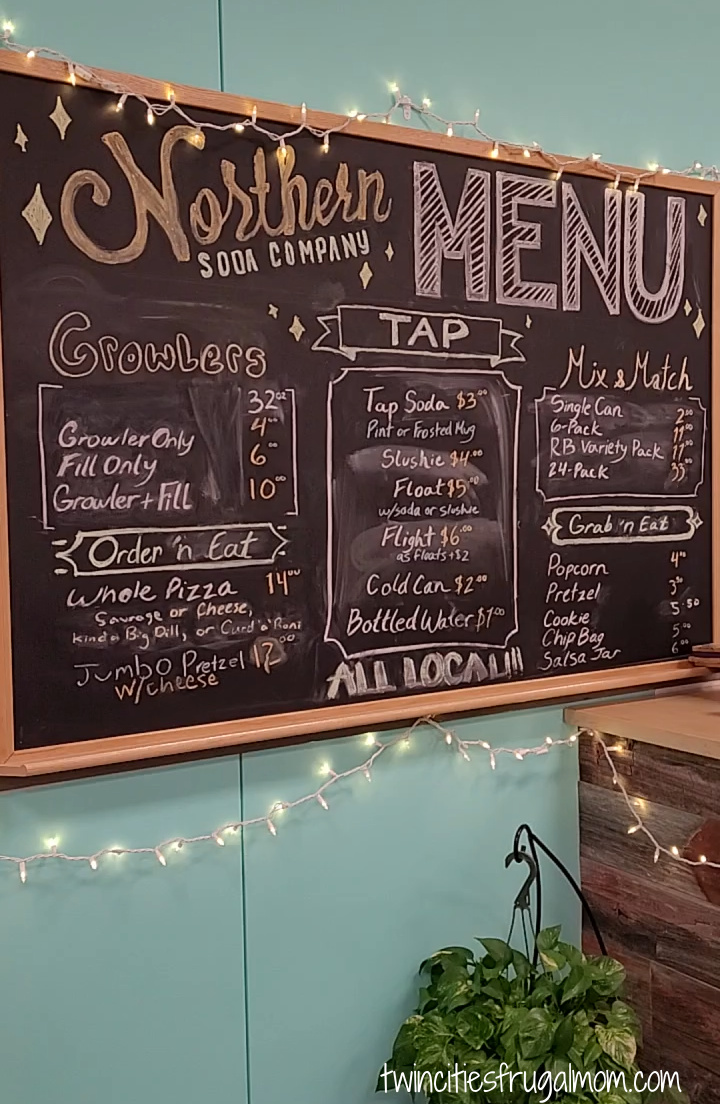 Northern
SODA COMPANY
MENU
Growlers
32oz
Growler Only 4.00
Fill Only 6.00
Growler + Fill 10.00
Order 'n Eat
Whole Pizza 14.00
Sausage or Cheese,
Kinda Big Dill, or Curd 'o' Roni
Jumbo Pretzel 12.00
w/cheese
TAP
Tap Soda $3.00
Pint or Frosted Mug
Slushie $4.00
Float $5.00
w/soda or slushie
Flight $6.00
as floats +$2
Cold Can $2.00
Bottled Water $1.00
ALL LOCAL!!!
Mix & Match
Single Can 2.00
6-Pack 11.00
RB Variety Pack 17.00
24-Pack 35.00
Grab 'n Eat
Popcorn 4.00
Pretzel
Cookie
Chip Bag
Salsa Jar
twincitiesfrugalmom.com